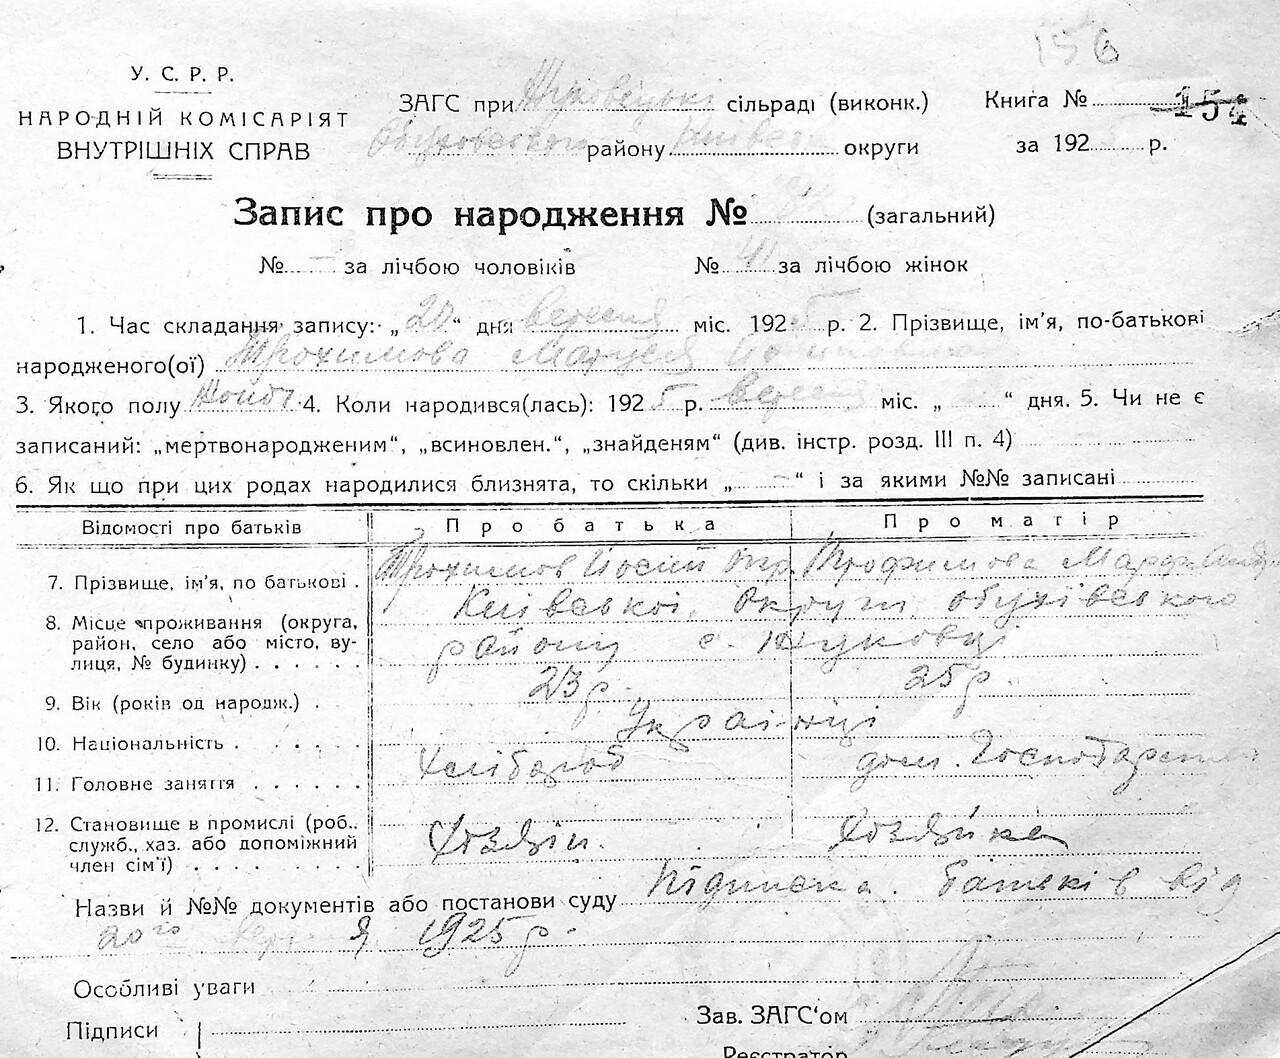 156
У. С. Р. Р.
НАРОДНІЙ КОМІСАРІЯТ
ВНУТРІШНІХ СПРАВ
ЗАГС при Жуковецькі сільраді (виконк.)
Книга № 154
Обуховского району Київс округи
за 192 р.
Запис про народження № (загальний)
№ — за лічбою чоловіків № 41 за лічбою жінок
1. Час складання запису: „20“ дня вересня міс. 1925 р. 2. Прізвище, ім'я, по-батькові
народженого(ої) Трохимова
3. Якого полу 4. Коли народився(лась): 1925 р. вересня міс. „ “ дня. 5. Чи не є
записаний: „мертвонародженим“, „всиновлен.“, „знайденям“ (див. інстр. розд. III п. 4)
6. Як що при цих родах народилися близнята, то скільки „ — “ і за якими №№ записані
Відомості про батьків Про батька Про матір
7. Прізвище, ім'я, по батькові . Трохимов Йосип Трофимова Марф.
8. Місце проживання (округа, Київської округи обухівського
район, село або місто, ву- району с. Жуковці
лиця, № будинку) . . . . . .
9. Вік (років од народж.) . 23 р. 25 р.
10. Національність . . . . . . Українці
11. Головне заняття . . . . . . Хлібороб дом. Господарство
12. Становище в промислі (роб.,
служб., хаз. або допоміжний Хозяїн. Хозяйка
член сім'ї) . . . . . . . . .
Назви й №№ документів або постанови суду Підписка батьків від
20го вересня 1925 р.
Особливі уваги
Підписи
Зав. ЗАГС'ом
Реєстратор